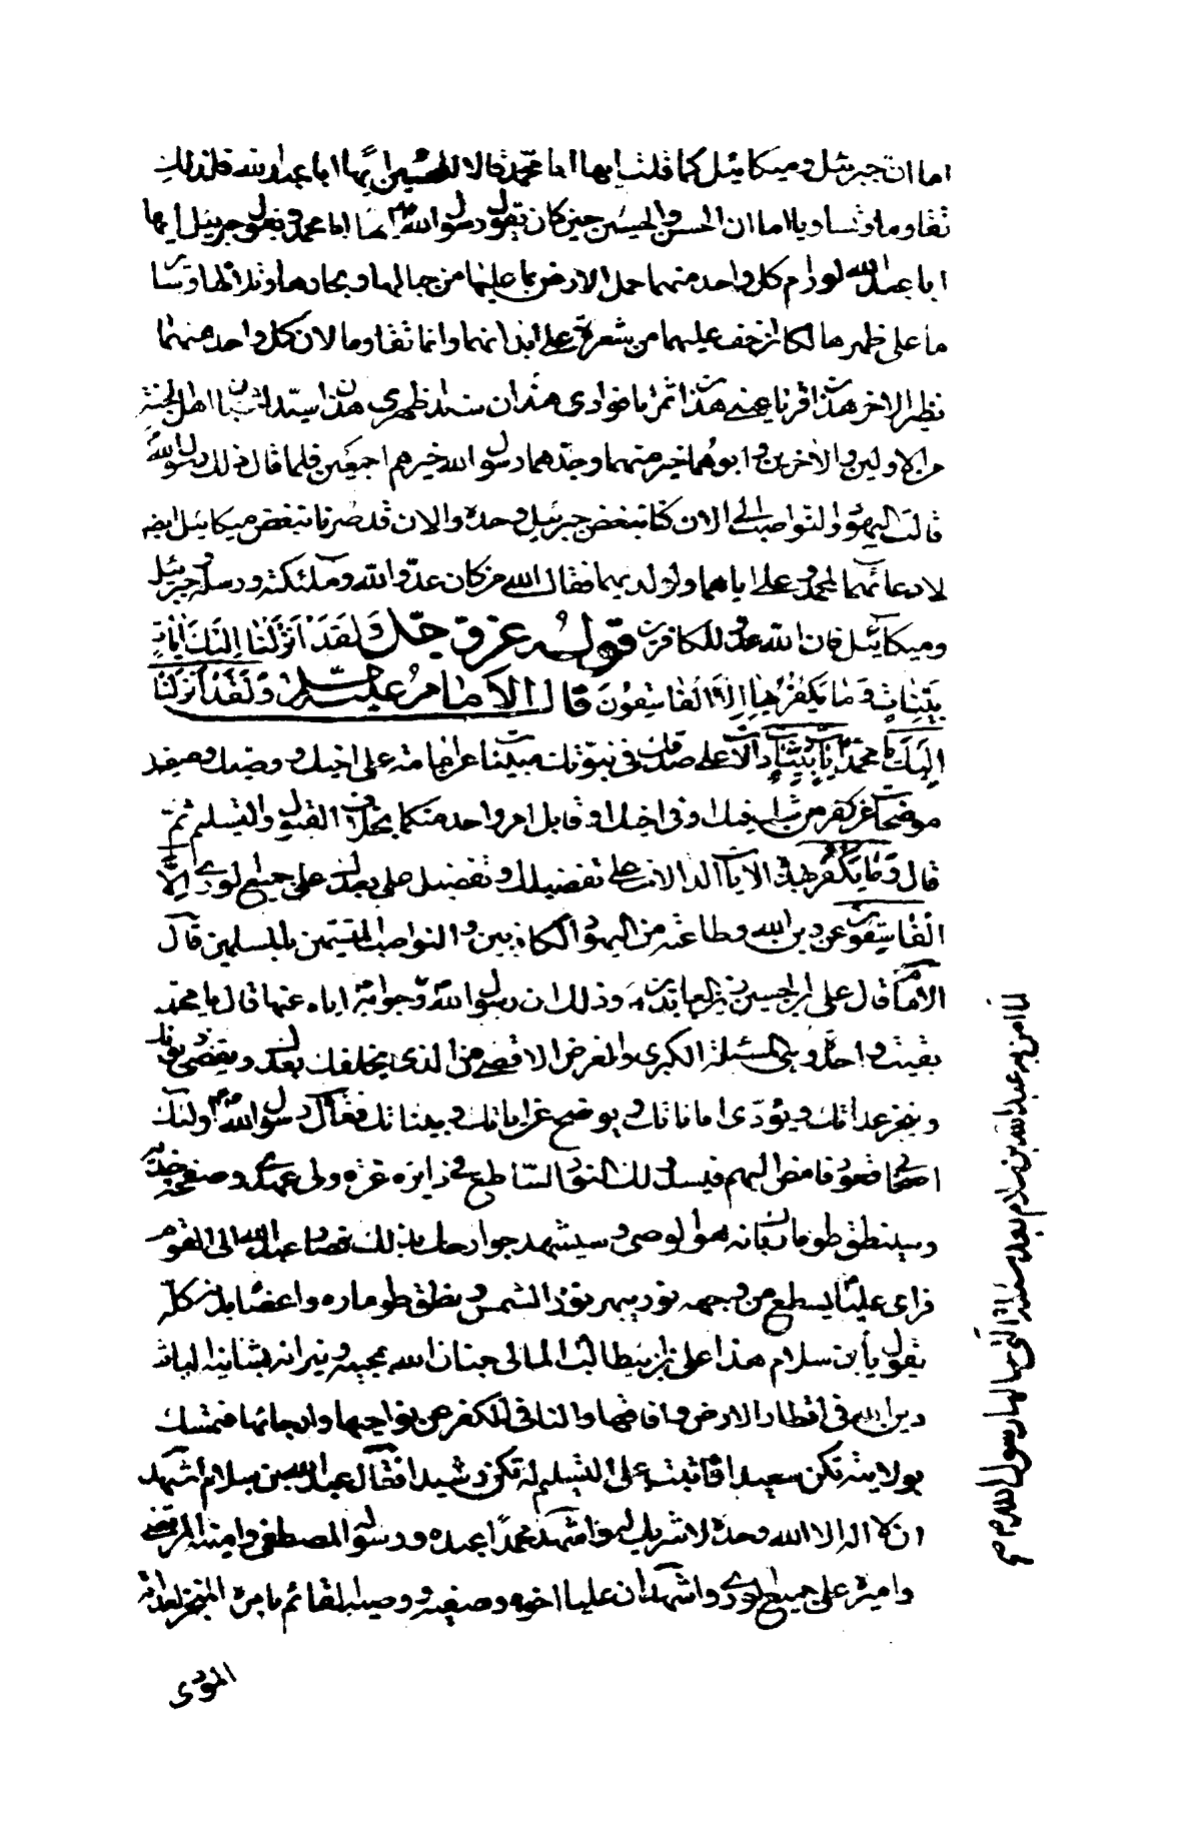 اما ان جبرئيل و ميكائيل كما قلت ايها ابا محمد قالا للحسين ايها ابا عبد الله فلذلك
تقاوما و تساويا اما ان الحسن و الحسين حين كان يقول رسول الله ص ايها ابا محمد و يقول جبرئيل ايها
ابا عبد الله لو رام كل واحد منهما حمل الارض بما عليها من جبالها و بحارها و تلالها و سا
ما على ظهرها لكان اخف عليهما من شعرة على ابدانهما و انما تقاوما لان كل واحد منهما
نظير الاخر هذان قرتا عيني هذان ثمرتا فوادى هذان سندا ظهرى هذان سيدا شباب اهل الجنة
من الاولين و الاخرين و ابوهما خير منهما و جدهما رسول الله خيرهم اجمعين فلما قال ذلك رسول الله ص
قالت اليهود و النواصب الى الان كنا نبغض جبرئيل وحده و الان قد صرنا نبغض ميكائيل ايضا
لادعائهما لمحمد و على اياهما و لولديهما فقال الله من كان عدوا لله و ملئكته و رسله و جبرئيل
و ميكائيل فان الله عدو للكافرين قوله عز و جل وَ لَقَدْ اَنْزَلْنا اِلَيْكَ اٰياتٍ
بَيِّناتٍ وَ مٰا يَكْفُرُ بِهٰا اِلَّا الْفٰاسِقُونَ قال الامام عليه السلام وَ لَقَدْ اَنْزَلْنٰا
اِلَيْكَ يا محمد اٰيٰاتٍ بَيِّنٰاتٍ دالات على صدقك في نبوتك مبينات عن امامة على اخيك و وصيك و صفيك
موضحات عن كفر من شك فيك او في اخيك او قابل امر واحد منكما بخلاف القبول و التسليم ثم
قال وَ مٰا يَكْفُرُ بهذه الايات الدالات على تفضيلك و تفضيل على بعدك على جميع الورى اِلَّا
الْفٰاسِقُونَ عن دين الله و طاعته من اليهود الكاذبين و النواصب المتسمين بالمسلمين قال
الامام قال على بن الحسين زين العابدين ع و ذلك ان رسول الله ص و جوابه اياه عنها قال يا محمد
بقيت واحدة و هى المسئلة الكبرى و الغرض الاقصى من الذى يخلفك بعدك و يقضى ديونك
و ينجز عداتك و يؤدى اماناتك و يوضح عن اياتك و بيناتك فقال رسول الله ص اولئك
اصحابى قعود فامض اليهم فسيدلك النور الساطع في دائرة غرة ولى عهدى و صفحة خديه
و سينطق طومارك بانه هو الوصى و سيشهد جوارحك بذلك فصار عبد الله الى القوم
فراى عليا يسطع من وجهه نور يبهر نور الشمس و نطق طوماره و اعضاء بدنه كل
يقول يا بن سلام هذا على بن ابيطالب المالى جنان الله بمحبيه و نيرانه بشانئيه الباث
دين الله في اقطار الارض و افاقها و النافى للكفر عن نواحيها و ارجائها فتمسك
بولايته تكن سعيدا و اثبت على التسليم له تكن رشيدا فقال عبد الله بن سلام اشهد
ان لا اله الا الله وحده لا شريك له و اشهد محمدا عبده و رسوله المصطفى و امينه المرتضى
و اميره على جميع الورى و اشهد ان عليا اخوه و صفيه و وصيه القائم بامره المنجز لعداته
المودى
لما امن به عبد الله بن سلام بعد مسئلته التى سالها رسول الله ص